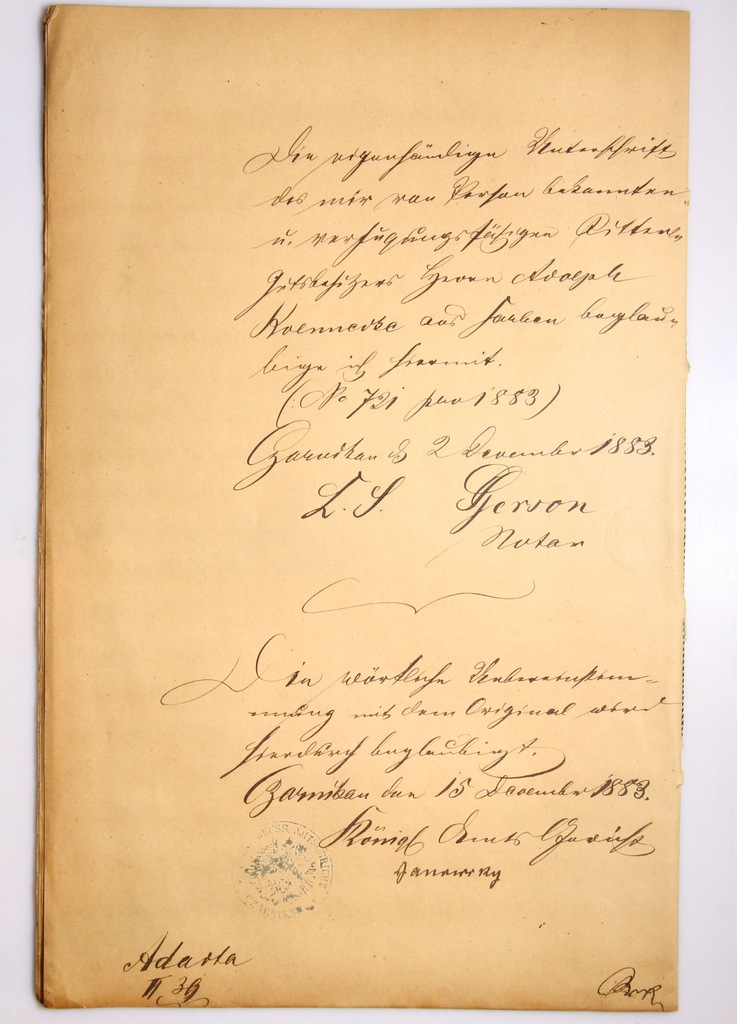 Die eigenhändige Unterschrift
des mir von Person bekannten
u. verfügungsfähigen Ritter-
gutsbesitzers Herrn Adolph
Koennecke aus Sarben beglau-
bige ich hiermit.
(No 721 pro 1883)
Czarnikau d. 2 Dezember 1883.
L. S. Gerson
Notar
Die wörtliche Uebereinstim-
mung mit dem Original wird
hierdurch beglaubigt.
Czarnikau den 15 Dezember 1883.
Königl Amts Gericht
Adacta
II 39